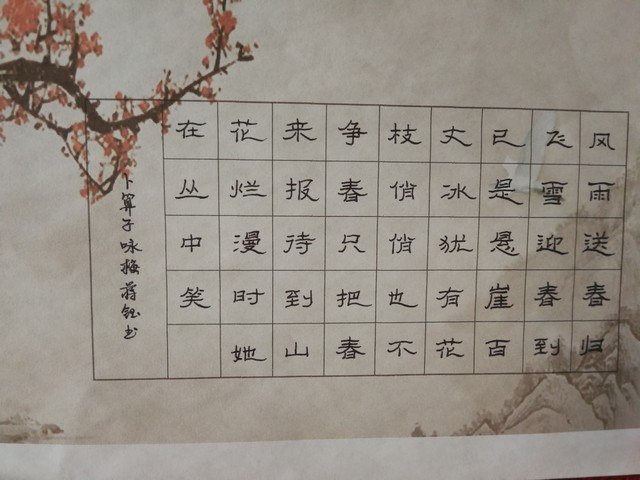 风雨送春归
飞雪迎春到
已是悬崖百
丈冰犹有花
枝俏俏也不
争春只把春
来报待到山
花烂漫时她
在丛中笑
卜算子咏梅蒋钰书